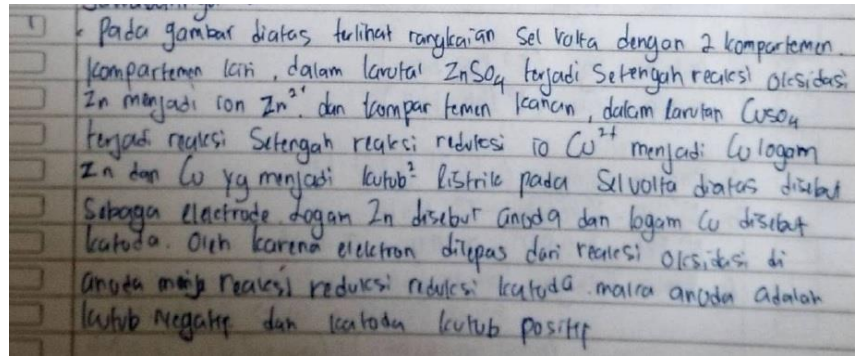 1 . Pada gambar diatas terlihat rangkaian Sel volta dengan 2 kompartemen.
kompartemen kiri, dalam larutal ZnSO4 terjadi Setengah reaksi oksidasi
Zn menjadi ion Zn²⁺. dan kompar temen kanan, dalam larutan CuSO4
terjadi reaksi Setengah reaksi reduksi io Cu²⁺ menjadi Cu logam
Zn dan Cu yg menjadi kutub² listrik pada Sel volta diatas disebut
Sebaga electrode. logam Zn disebut anoda dan logam Cu disebut
katoda. Oleh karena elektron dilepas dari reaksi oksidasi di
anoda reaksi reduksi reduksi katoda. maka anoda adalah
kutub negatif dan katoda kutub positif